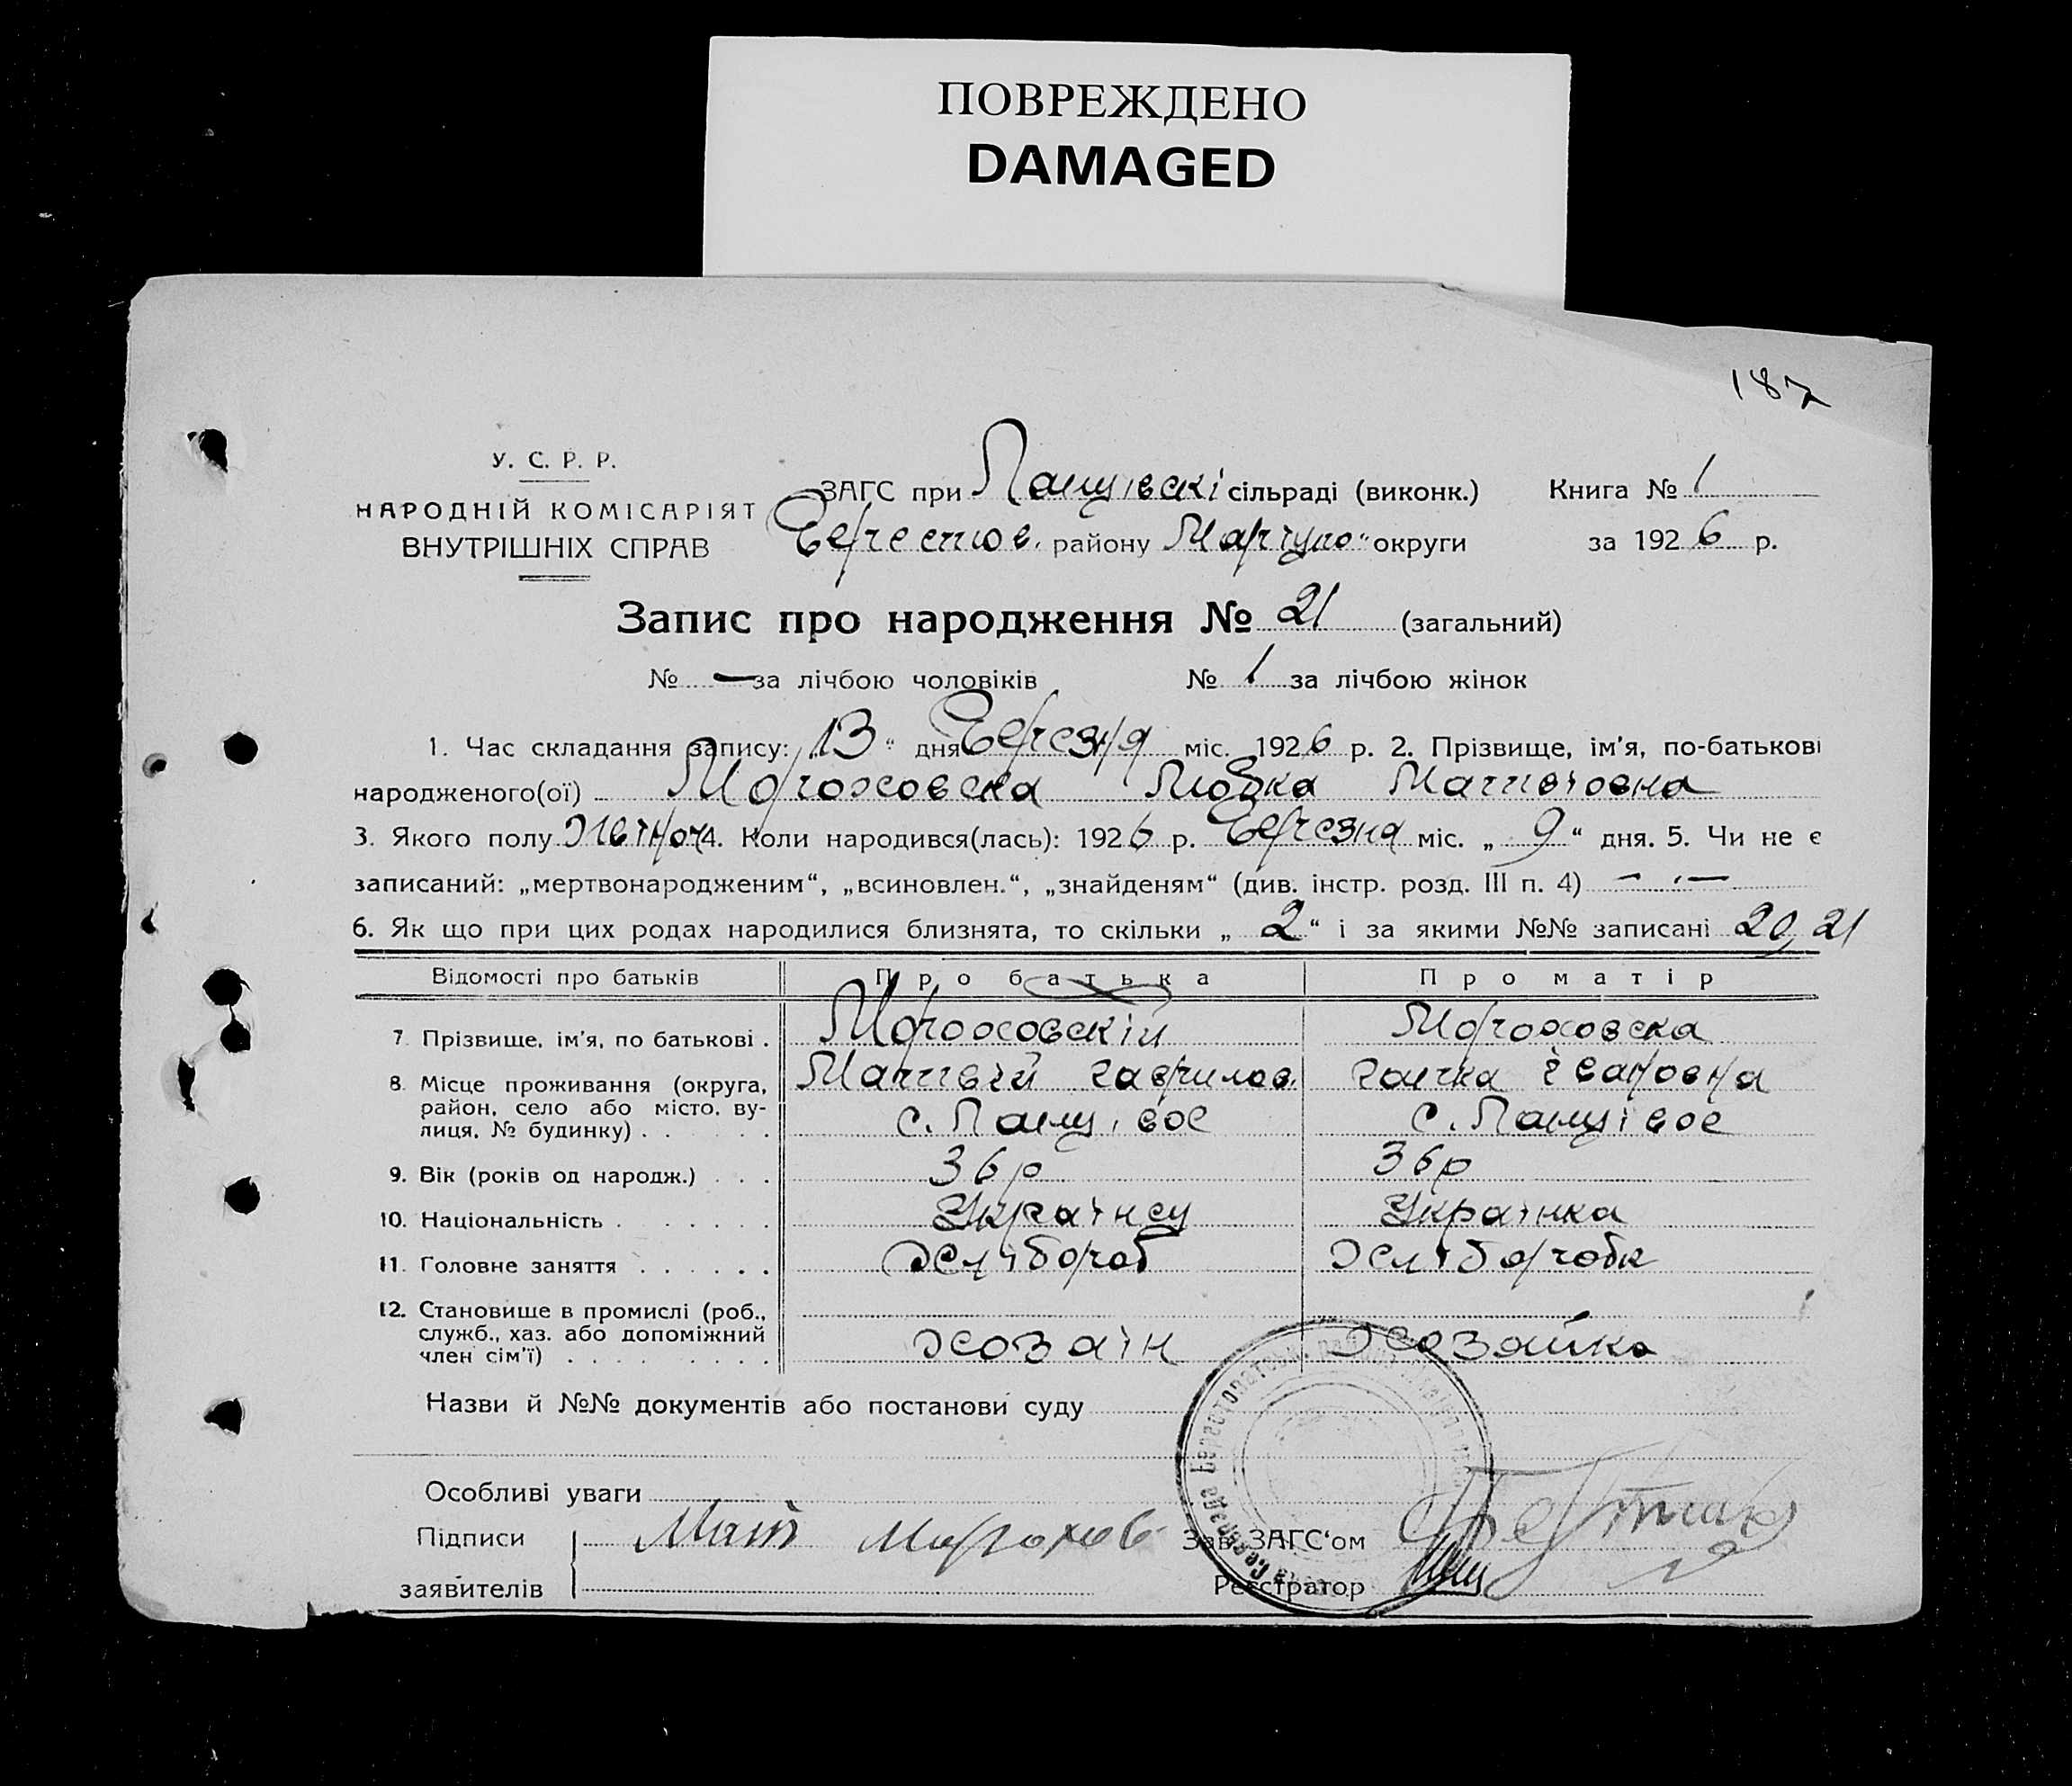 ПОВРЕЖДЕНО
DAMAGED
187
У. С. Р. Р.
НАРОДНІЙ КОМІСАРІЯТ
ВНУТРІШНІХ СПРАВ
ЗАГС при сільраді (виконк.)
Берестов. району округи
Книга № 1
за 1926 р.
Запис про народження № 21 (загальний)
№ — за лічбою чоловіків № 1 за лічбою жінок
1. Час складання запису: 13 " дня Березня міс. 1926 р. 2. Прізвище, ім'я, по-батькові
народженого(ої) Мороховска Любка Матвіовна
3. Якого полу 4. Коли народився(лась): 1926 р. Березня міс. „ 9 “ дня. 5. Чи не є
записаний: „мертвонародженим“, „всиновлен.“, „знайденям“ (див. інстр. розд. III п. 4) — —
6. Як що при цих родах народилися близнята, то скільки „ 2 “ і за якими №№ записані 20, 21
Відомості про батьків Про батька Про матір
7. Прізвище, ім'я, по батькові . Мороховскій Мороховска
Матвій Гаврилов. Івановна
8. Місце проживання (округа, район, село або місто, ву-
лиця, № будинку) . . . . с.
9. Вік (років од народж.) . . . 36 р 36 р
10. Національність . . . . . . Українец Українка
11. Головне заняття . . . . . . Хлібороб Хліборобк
12. Становище в промислі (роб.,
служб., хаз. або допоміжний
член сім'ї) . . . . . . . . . хозаін хозяйка
Назви й №№ документів або постанови суду
Особливі уваги
Підписи Мат Морохов Зав. ЗАГС'ом
заявителів Реєстратор